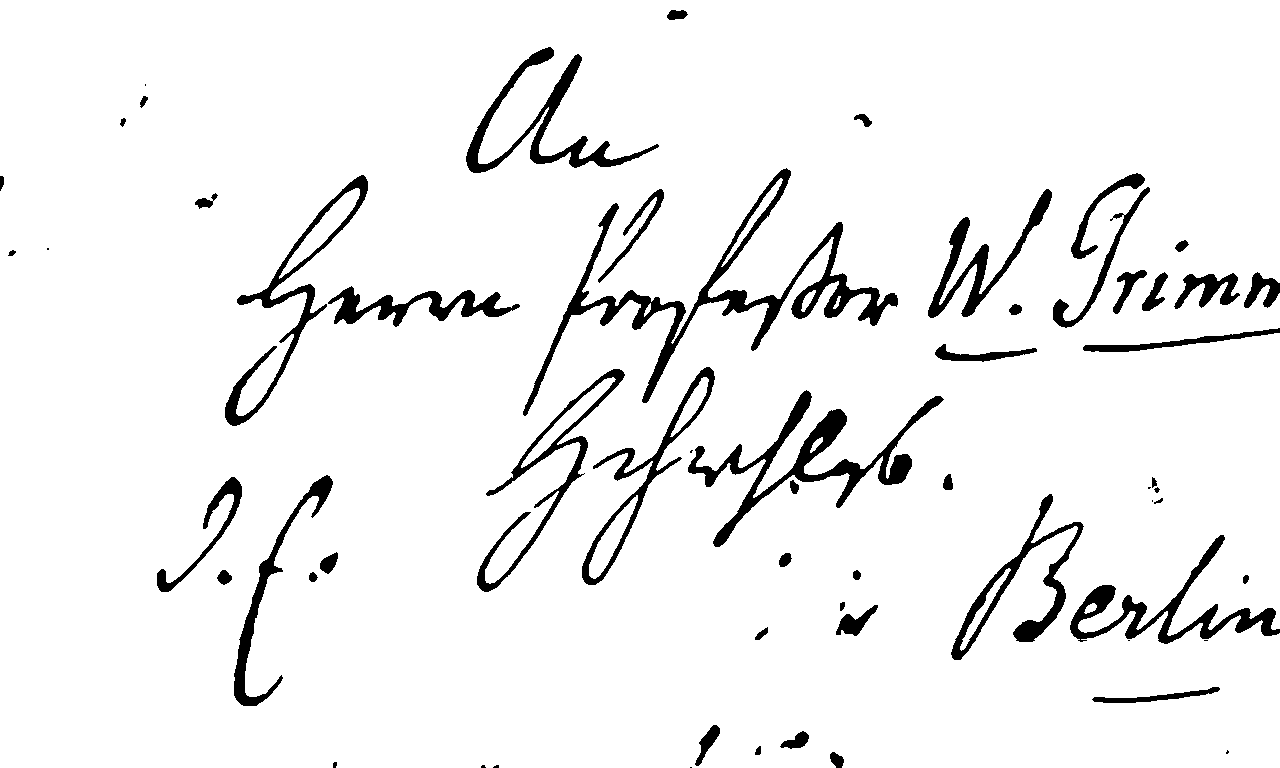 An
Herrn Professor W. Grimm
Hchwhlgb.
d. E.
in Berlin